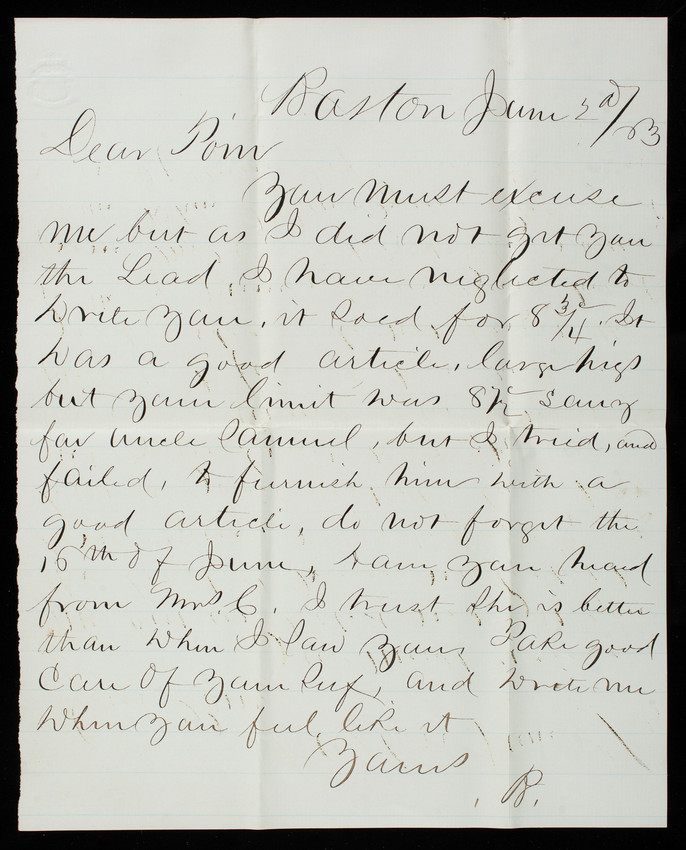 Boston June 2d/63
Dear Tom
You must excuse
me but as I did not get you
the Lead, I have neglected to
write you, it sold for 8 3/4. It
was a good article, large pigs
but your limit was 8 1/2 sorry
for uncle Samuel, but I tried, and
failed, to furnish him with a
good article, do not forget the
16th of June, Have you heard
from Mrs C. I trust she is better
than when I saw you, Take good
Care of yourself, and write me
when you feel like it
Yours
B.